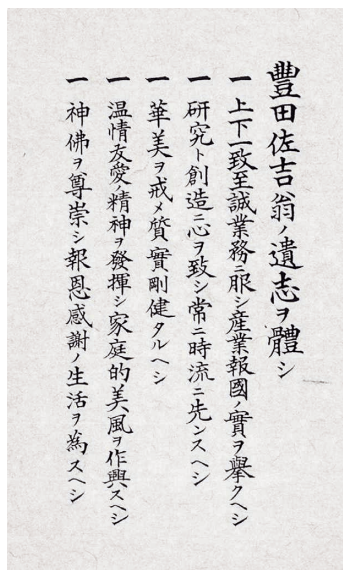 豐田佐吉翁ノ遺志ヲ體シ
一 上下一致至誠業務ニ服シ産業報國ノ實ヲ擧クヘシ
一 研究ト創造ニ心ヲ致シ常ニ時流ニ先ンスヘシ
一 華美ヲ戒メ質實剛健タルヘシ
一 温情友愛ノ精神ヲ發揮シ家庭的美風ヲ作興スヘシ
一 神佛ヲ尊崇シ報恩感謝ノ生活ヲ為スヘシ